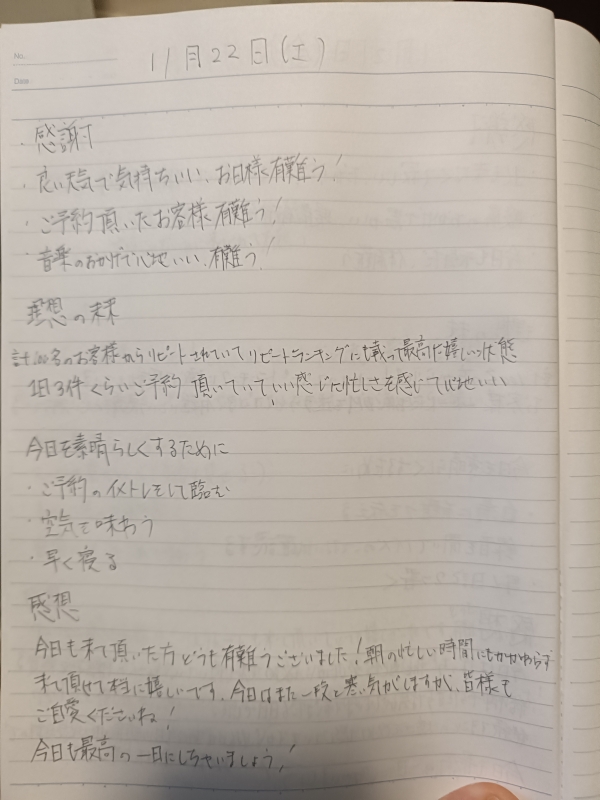 No.
Date
11月22日(土)
・感謝
・良い天気で気持ちいい、お日様有難う!
・ご予約頂いたお客様有難う!
・音楽のおかげで心地いい、有難う!
理想の未来
計100名のお客様からリピートされていてリピートランキングにも載って最高に嬉しい状態
1日3件くらいご予約頂いていていい感じに忙しさを感じて心地いい
今日を素晴らしくするために
・ご予約のイメトレをして臨む
・空気で味わう
・早く寝る
感想
今日も来て頂いた方どうも有難うございました!朝の忙しい時間にもかかわらず
来て頂せて本当に嬉しいです、今日はまた一段と寒い気がしますが、皆様も
ご自愛くださいね!
今日も最高の一日にしちゃいましょう!